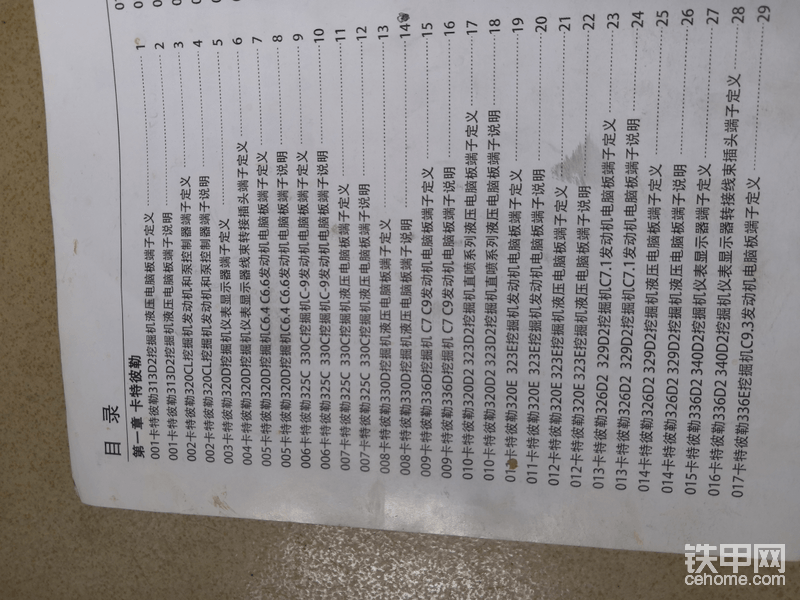 目 录
第一章 卡特彼勒
001卡特彼勒313D2挖掘机液压电脑板端子定义 1
001卡特彼勒313D2挖掘机液压电脑板端子说明 2
002卡特彼勒320CL挖掘机发动机和泵控制器端子定义 3
002卡特彼勒320CL挖掘机发动机和泵控制器端子说明 4
003卡特彼勒320D挖掘机仪表显示器端子定义 5
004卡特彼勒320D挖掘机仪表显示器线束转接插头端子定义 6
005卡特彼勒320D挖掘机C6.4 C6.6发动机电脑板端子定义 7
005卡特彼勒320D挖掘机C6.4 C6.6发动机电脑板端子说明 8
006卡特彼勒325C 330C挖掘机C-9发动机电脑板端子定义 9
006卡特彼勒325C 330C挖掘机C-9发动机电脑板端子说明 10
007卡特彼勒325C 330C挖掘机液压电脑板端子定义 11
007卡特彼勒325C 330C挖掘机液压电脑板端子说明 12
008卡特彼勒330D挖掘机液压电脑板端子定义 13
008卡特彼勒330D挖掘机液压电脑板端子说明 14
009卡特彼勒336D挖掘机 C7 C9发动机电脑板端子定义 15
009卡特彼勒336D挖掘机 C7 C9发动机电脑板端子说明 16
010卡特彼勒320D2 323D2挖掘机直喷系列液压电脑板端子定义 17
010卡特彼勒320D2 323D2挖掘机直喷系列液压电脑板端子说明 18
011卡特彼勒320E 323E挖掘机发动机电脑板端子定义 19
011卡特彼勒320E 323E挖掘机发动机电脑板端子说明 20
012卡特彼勒320E 323E挖掘机液压电脑板端子定义 21
012卡特彼勒320E 323E挖掘机液压电脑板端子说明 22
013卡特彼勒326D2 329D2挖掘机C7.1发动机电脑板端子定义 23
013卡特彼勒326D2 329D2挖掘机C7.1发动机电脑板端子说明 24
014卡特彼勒326D2 329D2挖掘机液压电脑板端子定义 25
014卡特彼勒326D2 329D2挖掘机液压电脑板端子说明 26
015卡特彼勒336D2 340D2挖掘机仪表显示器端子定义 27
016卡特彼勒336D2 340D2挖掘机仪表显示器转接线束插头端子定义 28
017卡特彼勒336E挖掘机C9.3发动机电脑板端子定义 29
铁甲网
cehome.com